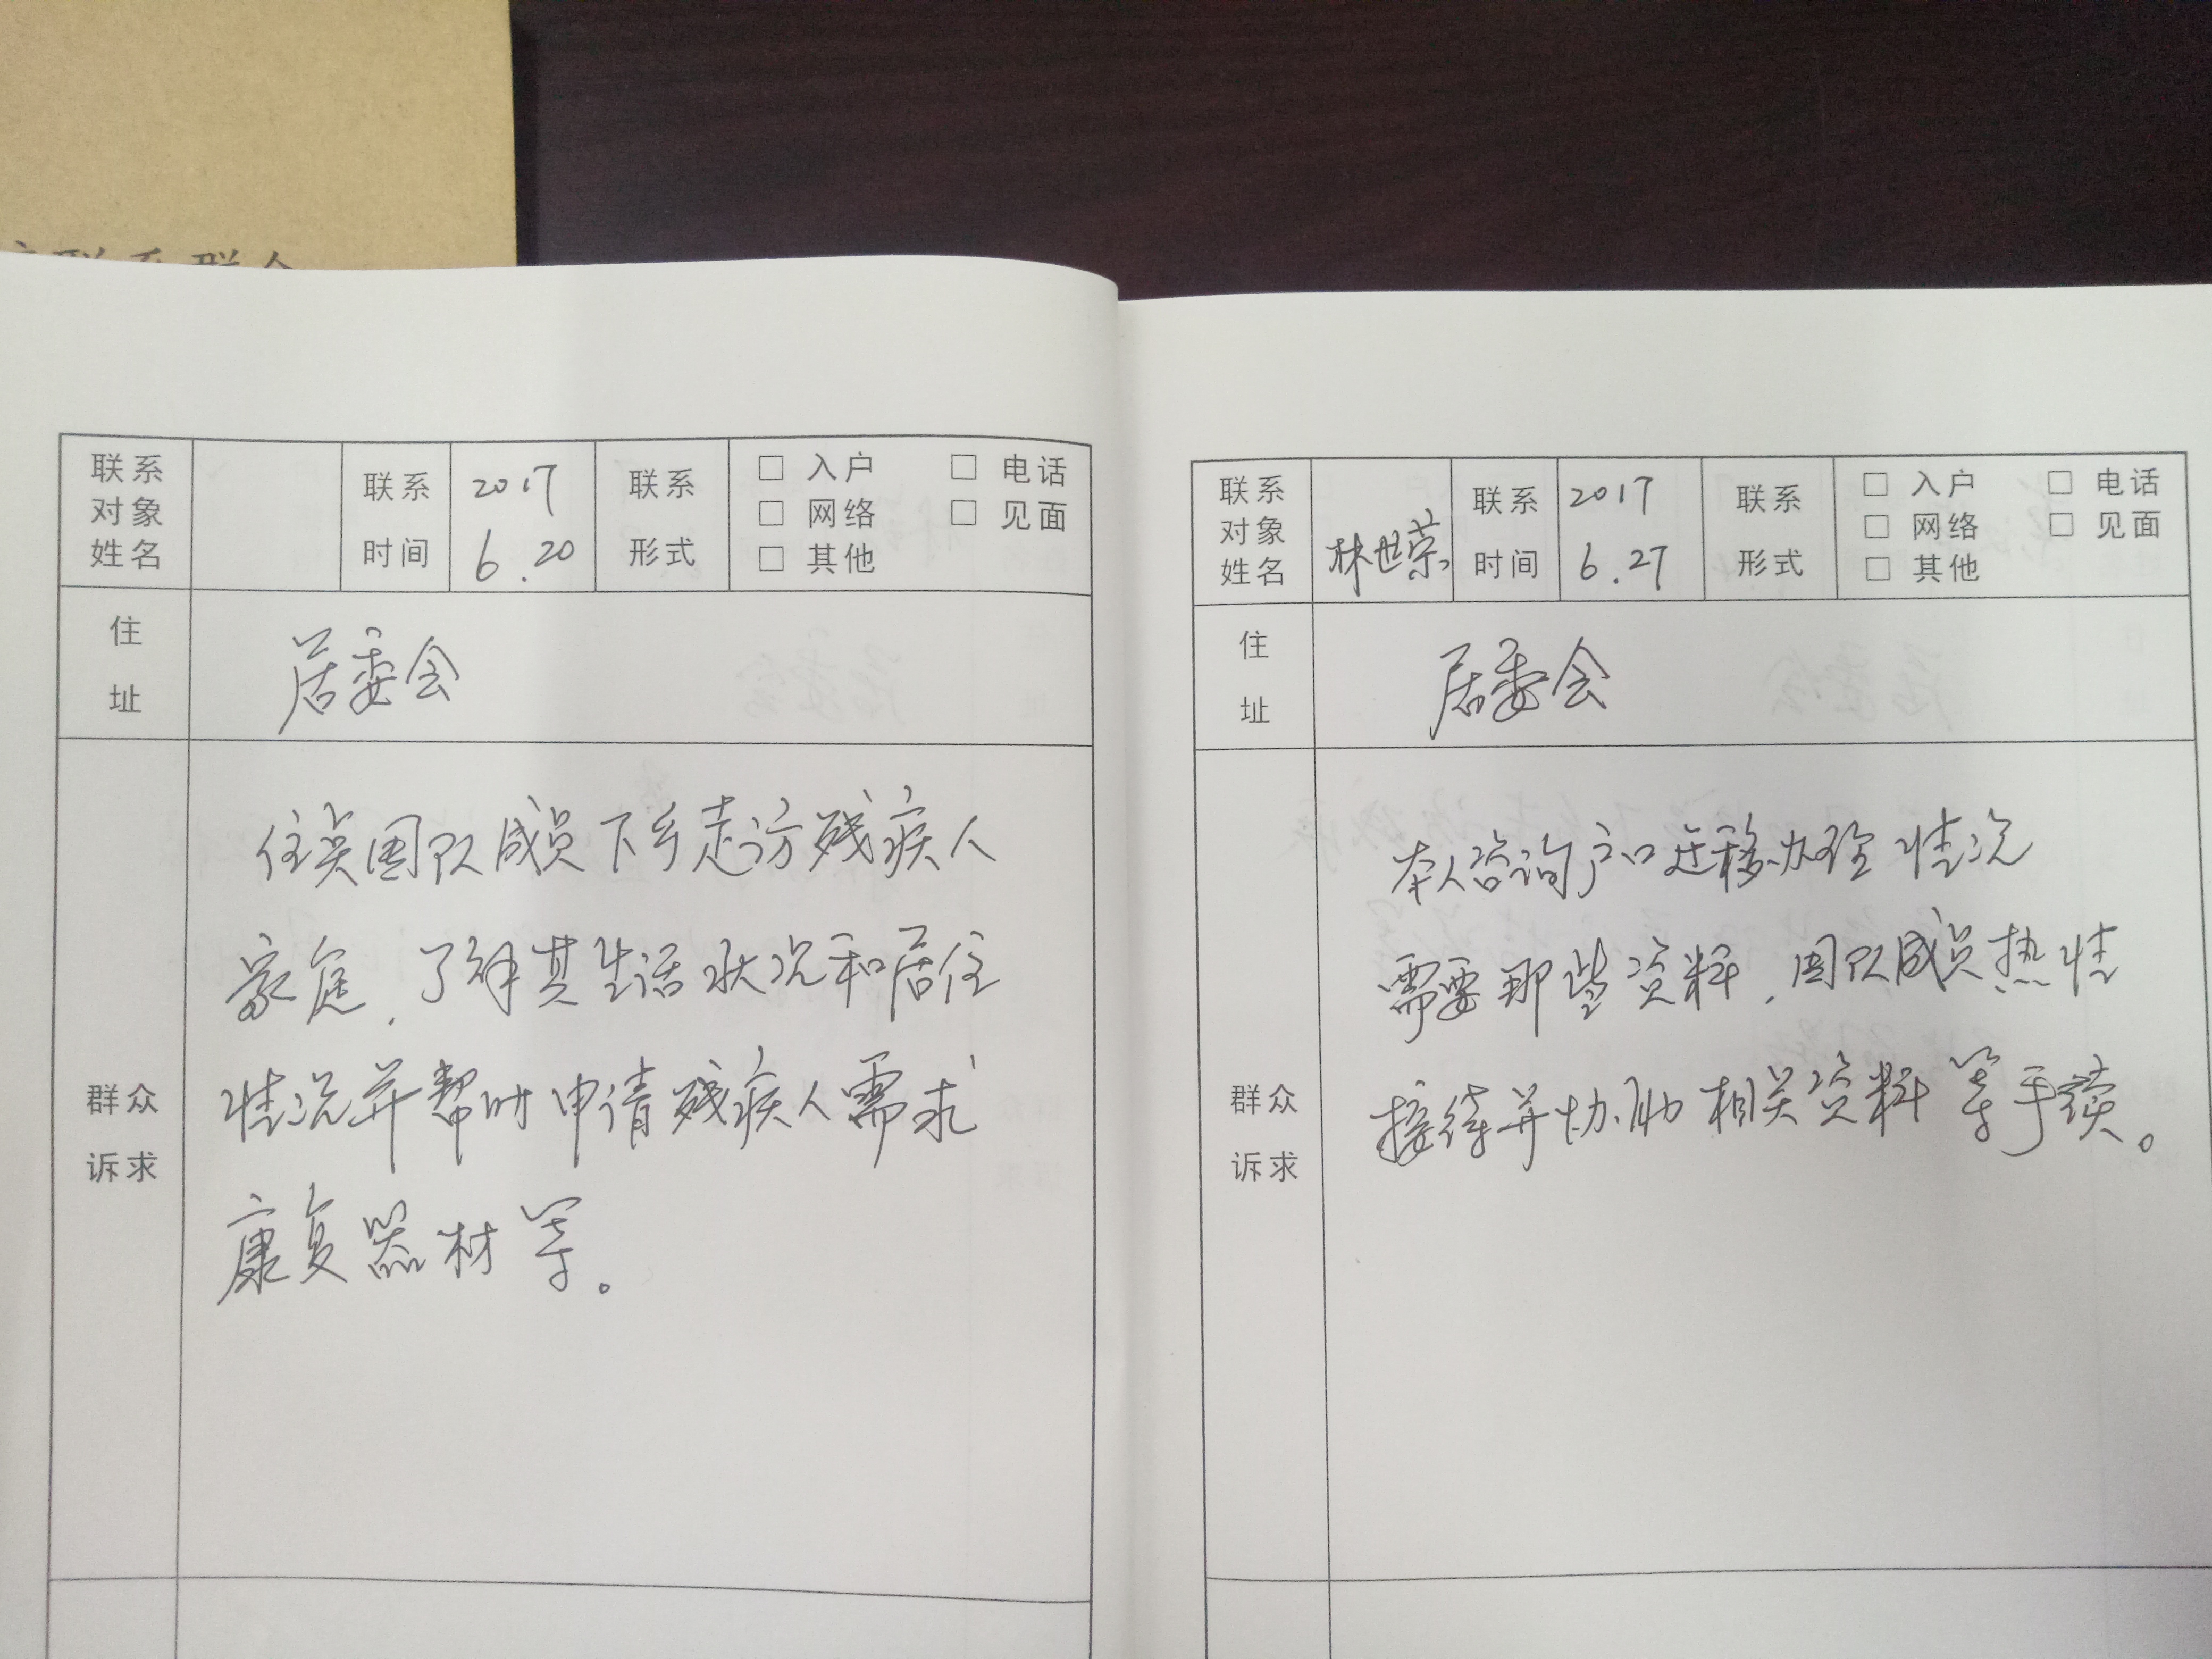 联系群众
联系对象姓名
联系时间
2017
6.20
联系形式
□ 入户 □ 电话
□ 网络 □ 见面
□ 其他
住址
居委会
群众诉求
住类团队成员下乡走访残疾人
家庭,了解其生活状况和居住
情况并帮助申请残疾人需求
康复器材等。
联系对象姓名
林世荣
联系时间
2017
6.27
联系形式
□ 入户 □ 电话
□ 网络 □ 见面
□ 其他
住址
居委会
群众诉求
本人咨询户口迁移办理情况
需要那些资料,团队成员热情
接待并协助相关资料等手续。